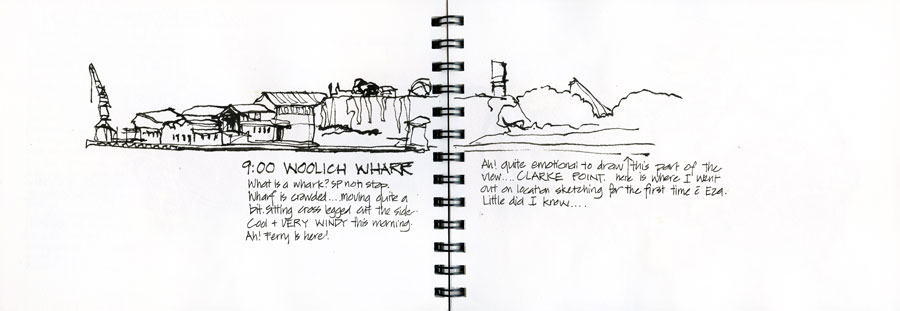 9:00 WOOLICH WHARF
What is a whark? SP not stop.
Wharf is crowded....moving quite a
bit. Sitting cross legged out the side.
Cool + VERY WINDY this morning.
Ah! Ferry is here!
Ah! quite emotional to draw ↑ this part of the
view.... CLARKE POINT. here is where I went
out on location sketching for the first time c̄ Eza.
Little did I know.....